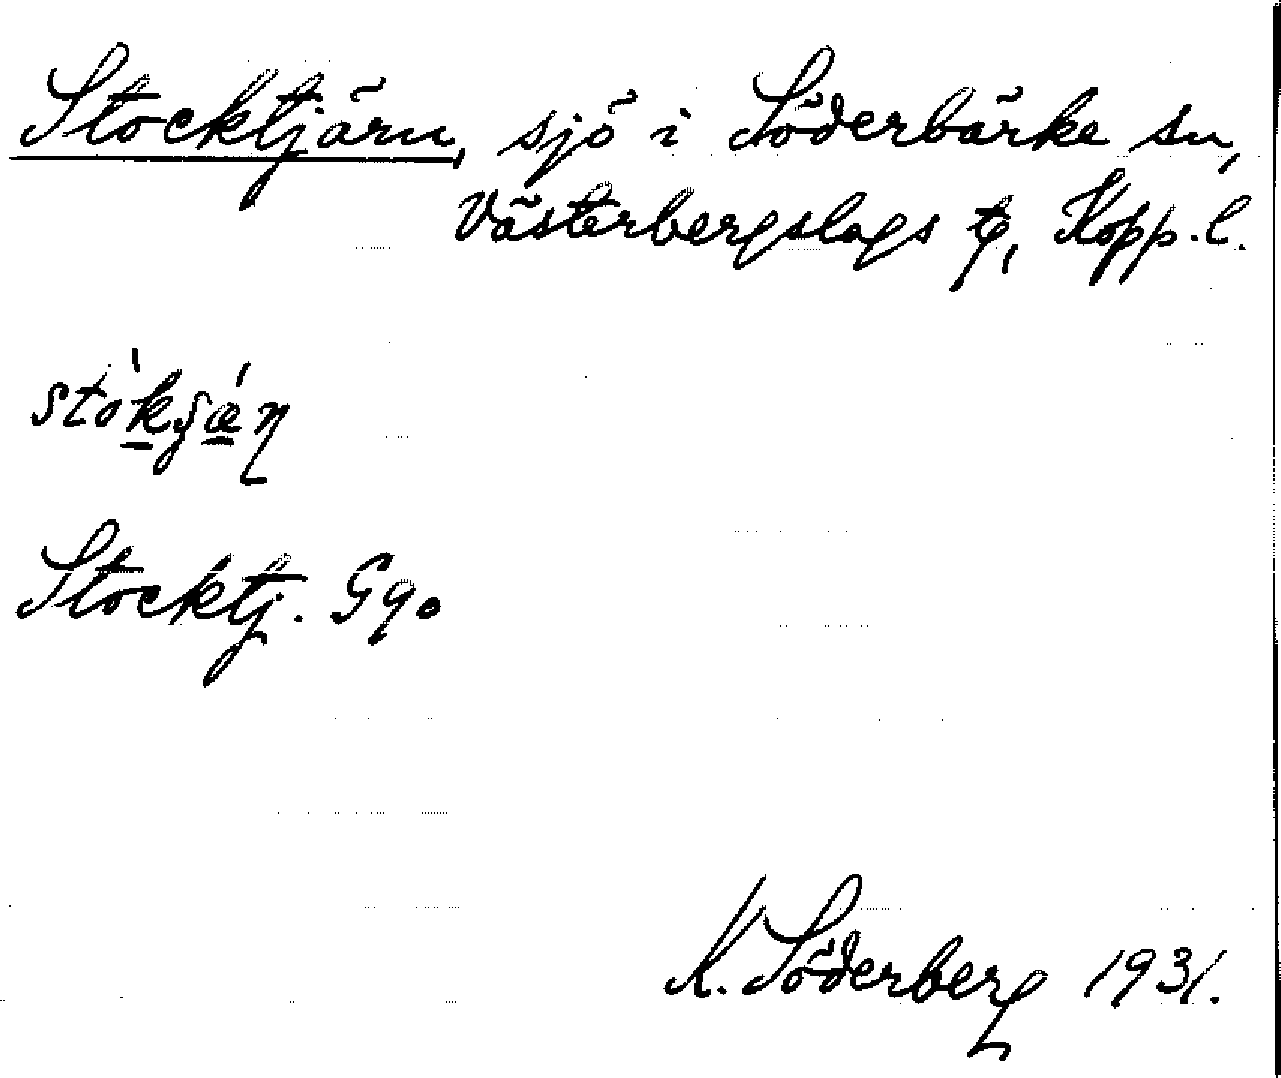 Stocktjärn, sjö i Söderbärke sn,
Västerbergslags tg, Kopp. l.
Stocktj. G90
K. Söderberg 1931.